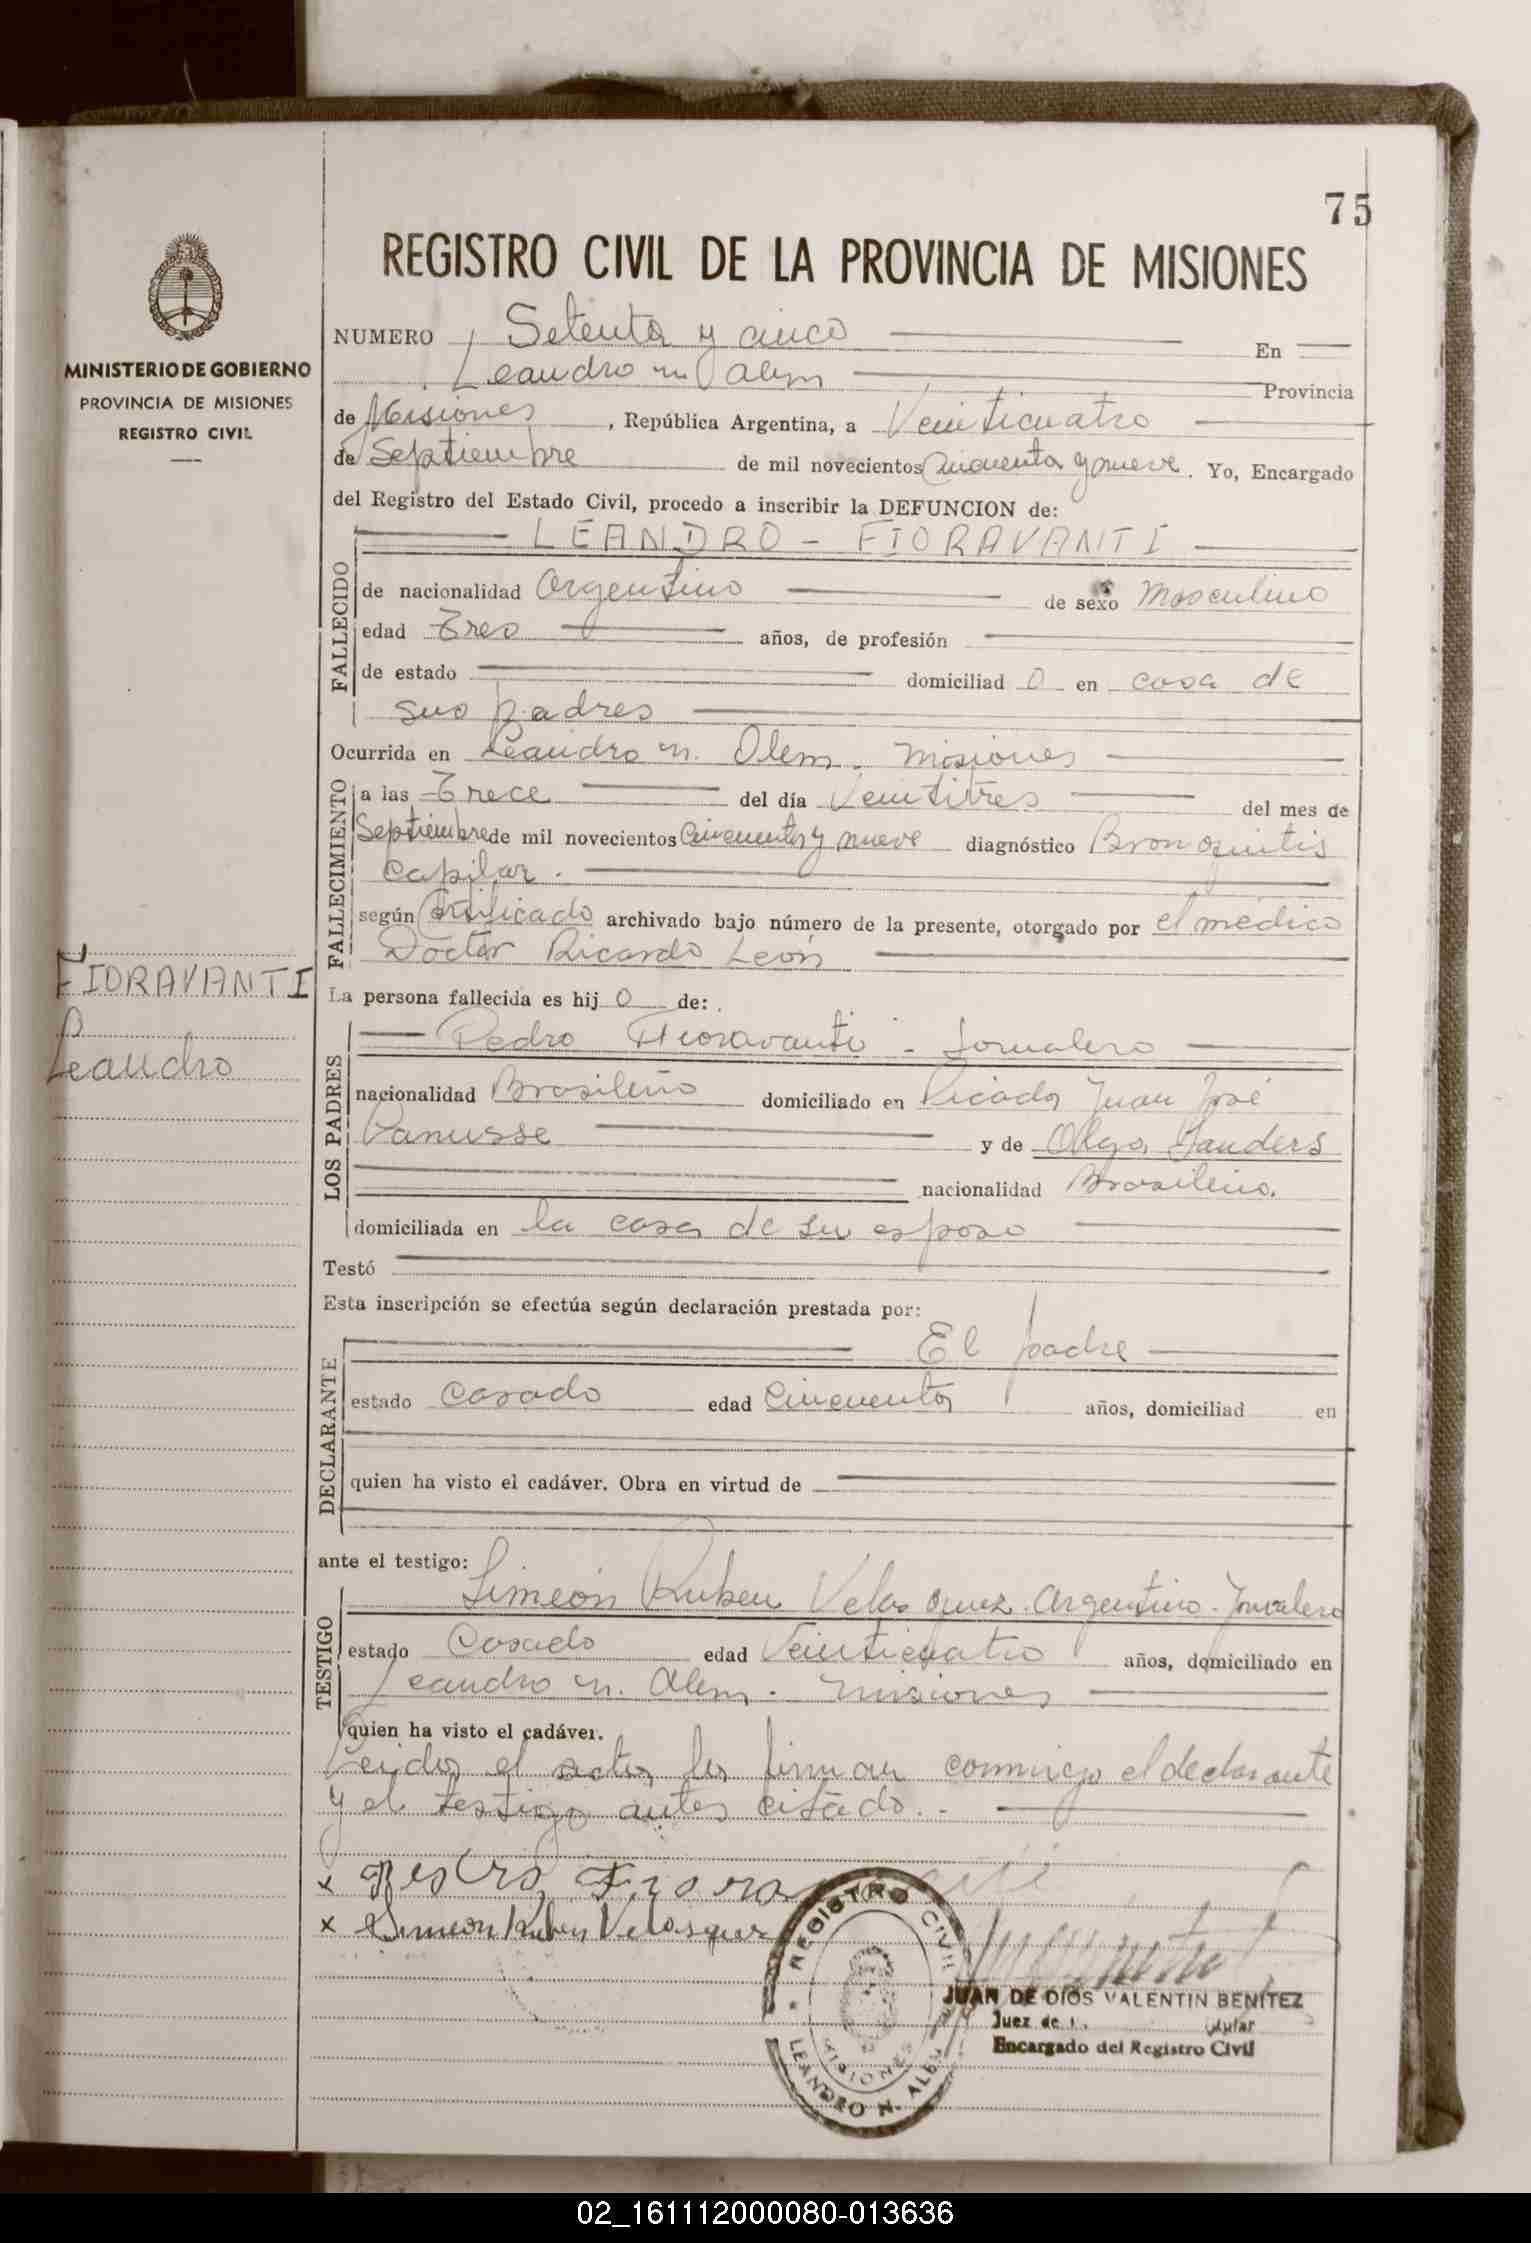 75
REGISTRO CIVIL DE LA PROVINCIA DE MISIONES
MINISTERIO DE GOBIERNO
PROVINCIA DE MISIONES
REGISTRO CIVIL
NUMERO Setenta y cinco En
Leandro n. Alem Provincia
de Misiones, República Argentina, a Veinticuatro
de Septiembre de mil novecientos Cincuenta y nueve. Yo, Encargado
del Registro del Estado Civil, procedo a inscribir la DEFUNCION de:
LEANDRO - FIORAVANTI
FALLECIDO
de nacionalidad Argentino de sexo Masculino
edad Tres años, de profesión
de estado domiciliad o en casa de
sus padres
Ocurrida en Leandro n. Alem. Misiones
FALLECIMIENTO
a las Trece del día Veintitres del mes de
Septiembre de mil novecientos Cincuenta y nueve diagnóstico Bronquitis
Capilar.
según Certificado archivado bajo número de la presente, otorgado por el médico
Doctor Ricardo León
FIORAVANTI
Leandro
La persona fallecida es hij o de:
LOS PADRES
Pedro Fioravanti - Jornalero
nacionalidad Brasileño domiciliado en Picada Juan José
Lanusse y de Olga Sanders
nacionalidad Brasileña.
domiciliada en la casa de su esposo
Testó
Esta inscripción se efectúa según declaración prestada por:
El padre
DECLARANTE
estado Casado edad Cincuenta años, domiciliad en
quien ha visto el cadáver. Obra en virtud de
ante el testigo:
Simeón Ruben Velasquez. Argentino - Jornalero
TESTIGO
estado Casado edad Veinticuatro años, domiciliado en
Leandro n. Alem. Misiones
quien ha visto el cadáver.
Leida el acta, la firman conmigo el declarante
y el testigo antes citado.-
x Pedro Fioravanti
x Simeon Ruben Velasquez
REGISTRO CIVIL
MISIONES
LEANDRO N. ALEM
JUAN DE DIOS VALENTIN BENITEZ
Juez de
Encargado del Registro Civil
02_161112000080-013636